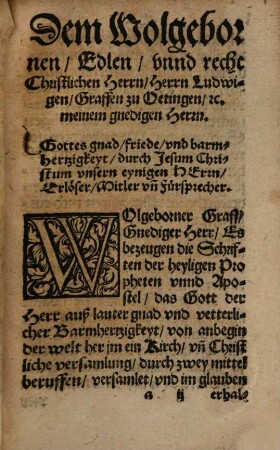 Dem Wolgebor
nen / Edlen / vnnd recht
Christlichen Herrn / Herrn Ludwi-
gen / Graffen zu Oetingen / ꝛc.
meinem gnedigen Herrn.
Gottes gnad / friede / vnd barm-
hertzigkeyt / durch Jesum Chri-
stum vnsern eynigen HErrn /
Erlöser / Mitler vñ Fürsprecher.
WOlgeborner Graff /
Gnediger Herr / Es
bezeugen die Schriff-
ten der heyligen Pro
pheten vnnd Apo-
stel / das Gott der
Herr auß lauter gnad vnd vetterli-
cher Barmhertzigkeyt / von anbegin
der welt her jm ein Kirch / vñ Christ
liche versamlung / durch zwey mittel
beruffen / versamlet / vnd im glauben
a ij erhal-